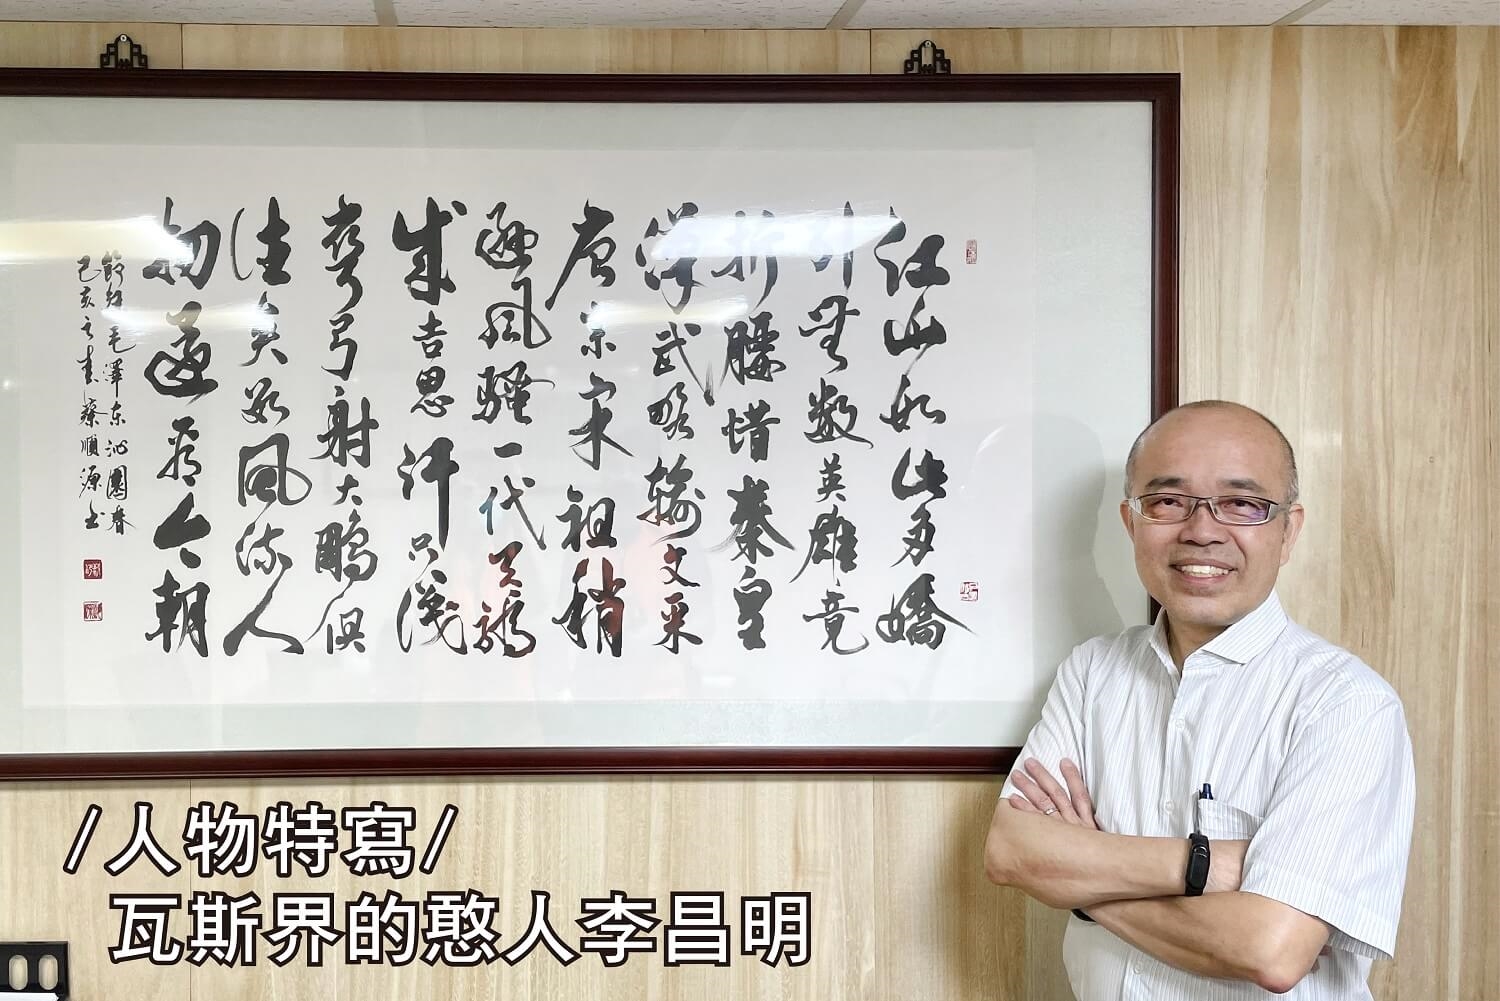 江山如此多嬌
引無數英雄竟
折腰惜秦皇
漢武略輸文采
唐宗宋祖稍
遜風騷一代天驕
成吉思汗只識
彎弓射大鵰俱
往矣數風流人
物還看今朝
節錄毛澤東沁園春
己亥之春蔡順源書
/人物特寫/
瓦斯界的憨人李昌明